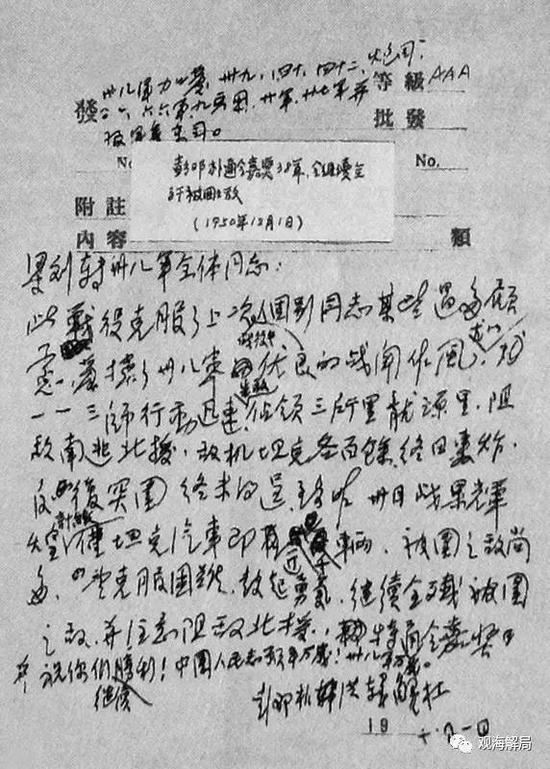 卅八军 卅九，四十，四十二，炮司，
發 六六军，九兵团，廿军，廿七军并
等級 AAA
报军委 东司。
批發
No.
No.
彭邓朴通令嘉奖38军，
(1950年12月1日)
附註
内容
類
梁刘转卅八军全体同志：
此战役克服了上次战役中个别同志某些过多顾
虑，发挥了卅八军优良的战斗作风，尤以
一一三师行动迅速，先敌占领三所里龙源里，阻
敌南逃北援，敌机坦克各百余，终日轰炸，
反复突围终未得逞，至昨卅日战果辉
煌，计缴仅坦克汽车即近千辆，被围之敌尚
多，望克服困难，鼓起勇气，继续全歼被围
之敌，并注意阻敌北援，特通令嘉奖
并祝你们继续胜利！中国人民志愿军万岁！卅八军万岁。
彭邓朴洪韩解杜
19
观海解局